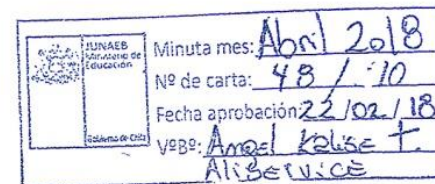 JUNAEB
Ministerio de
Educación
Gobierno de Chile
Minuta mes: Abril 2018
Nº de carta: 48 / 10
Fecha aprobación: 22/02/18
VºBº: Angel T.
Aliservice